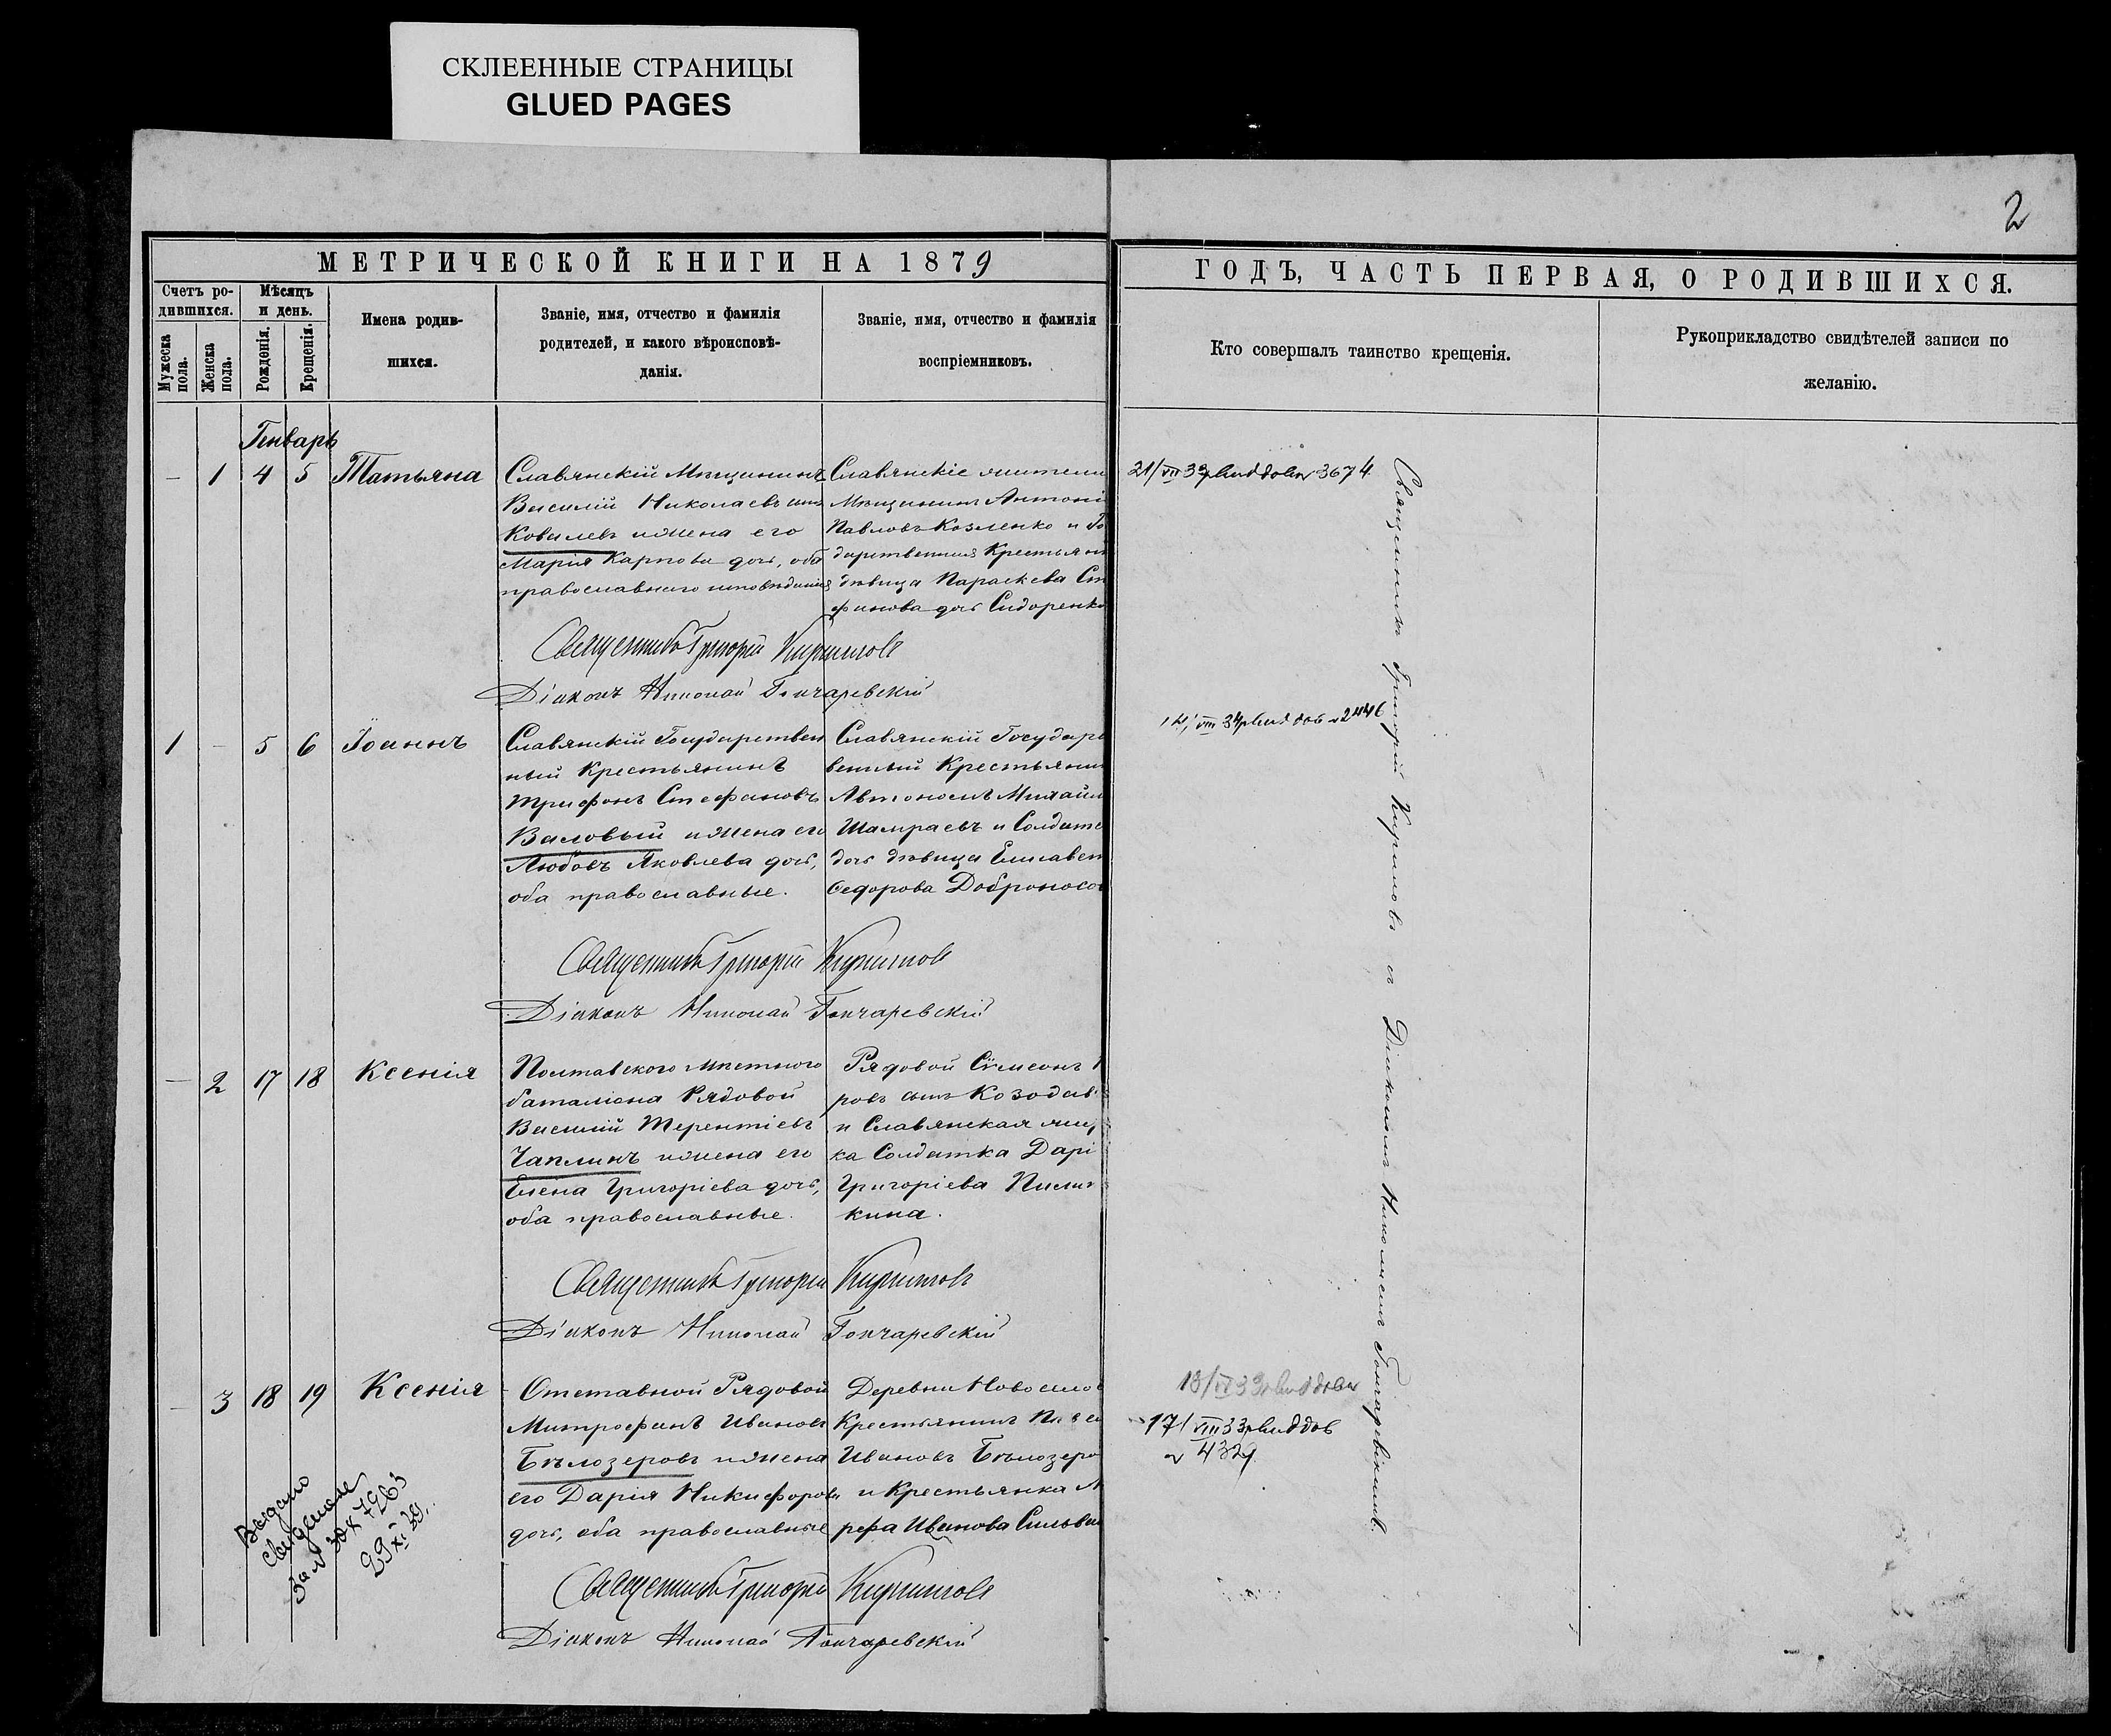 СКЛЕЕННЫЕ СТРАНИЦЫ
GLUED PAGES
2
МЕТРИЧЕСКОЙ КНИГИ НА 1879
ГОДЪ, ЧАСТЬ ПЕРВАЯ, О РОДИВШИХСЯ.
Счетъ ро-
дившихся.
Мужеска
пола.
Женска
пола.
Мѣсяцъ
и день.
Рожденія.
Крещенія.
Имена родив-
шихся.
Званіе, имя, отчество и фамилія
родителей, и какого вѣроисповѣ-
данія.
Званіе, имя, отчество и фамилія
воспріемниковъ.
Кто совершалъ таинство крещенія.
Рукоприкладство свидѣтелей записи по
желанію.
Генварь
– 1 4 5 Татьяна
Славянскій Мѣщанинъ
Василій Николаевъ сынъ
Ковалев и жена его
Марія Карпова дочь, оба
православнаго исповѣданія
Славянскіе жители
Мѣщанинъ Антоні
Павловъ Козленко и Го
дарственная Крестьян
дѣвица Параскева Ст
фанова дочь Сидоренко
21/VII 33 3674
Священникъ Григорій Кириловъ
Діаконъ Николай Гончаревскій
1 – 5 6 Іоаннъ
Славянскій Государствен
ный Крестьянинъ
Трифонъ Стефановъ
Валовый и жена его
Любовь Яковлева дочь,
оба православные.
Славянскій Государс
венный Крестьянин
Автономъ Михайл
Шамраевъ и Солдатс
дочь дѣвица Елисавет
Федорова Доброносов
14/VIII 34 2446
Священникъ Григорій Кириловъ
Діаконъ Николай Гончаревскій
– 2 17 18 Ксенія
Полтавского Мѣстного
баталіона Рядовой
Василій Терентіевъ
Чаплинъ и жена его
Елена Григоріева дочь,
оба православные.
Рядовой Сѵмеонъ
ровъ сынъ Козодав
и Славянская жит
ка Солдатка Дарі
Григоріева
кина.
Священникъ Григорій Кириловъ
Діаконъ Николай Гончаревскій
– 3 18 19 Ксенія
Отставной Рядовой
Митрофанъ Ивановъ
Бѣлозеровъ и жена
его Дарія Никифорова
дочь, оба православные
Деревни Новоселов
Крестьянинъ
Ивановъ Бѣлозеро
и Крестьянка
рфа Иванова Сильва
18/VI 33
17/VIII 33
4329
Выдано
29 XI
Священникъ Григорій Кириловъ
Діаконъ Николай Гончаревскій
Священникъ Григорій Кириловъ съ Діакономъ Николаемъ Гончаревскимъ.